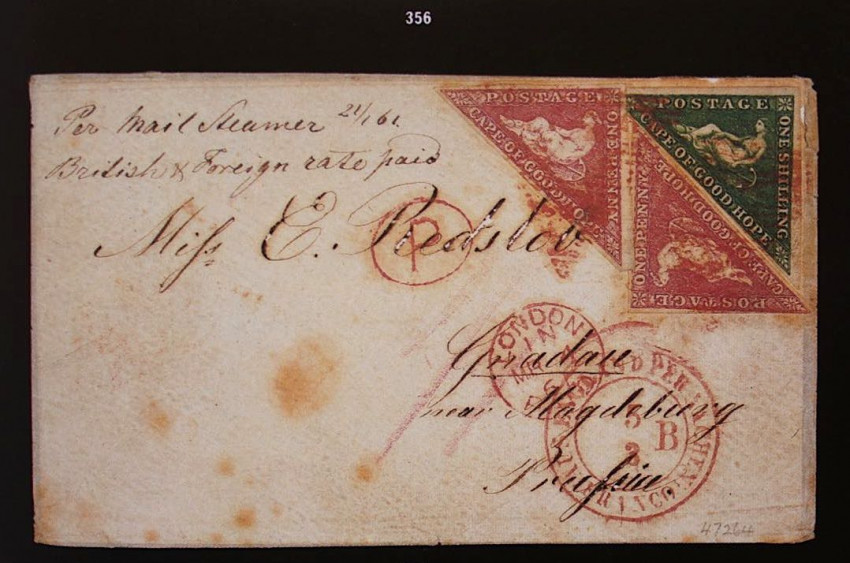 356
Per Mail Steamer 21/1 61.
British & Foreign rate paid
Miss E. Redslob
Gnadau
near Magdeburg
Prussia
P
POSTAGE
CAPE OF GOOD HOPE
ONE PENNY
POSTAGE
CAPE OF GOOD HOPE
ONE SHILLING
POSTAGE
CAPE OF GOOD HOPE
ONE PENNY
LONDON
FRANCO
B
47264